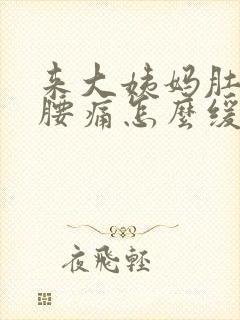 来大姨妈肚
腰痛怎麼缓
夜飛輕